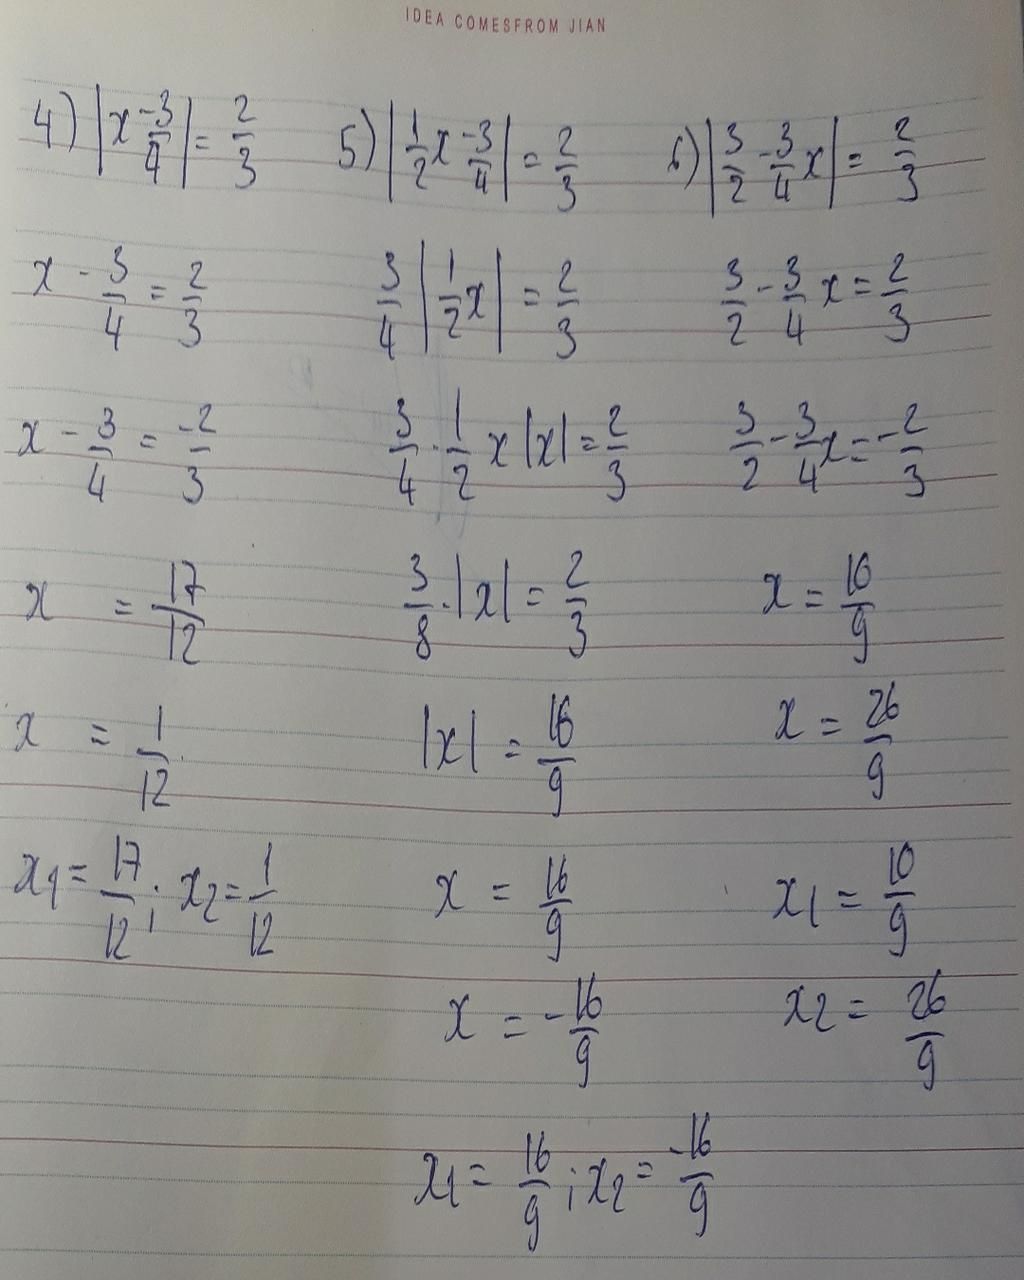 IDEA COMESFROM JIAN
4) |x -3/4| = 2/3
x - 3/4 = 2/3
x - 3/4 = -2/3
x = 17/12
x = 1/12
x1 = 17/12 ; x2 = 1/12
5) |1/2 x -3/4| = 2/3
3/4 |1/2 x| = 2/3
3/4 · 1/2 x |x| = 2/3
3/8 · |x| = 2/3
|x| = 16/9
x = 16/9
x = -16/9
x1 = 16/9 ; x2 = -16/9
6) |3/2 - 3/4 x| = 2/3
3/2 - 3/4 x = 2/3
3/2 - 3/4 x = -2/3
x = 10/9
x = 26/9
x1 = 10/9
x2 = 26/9